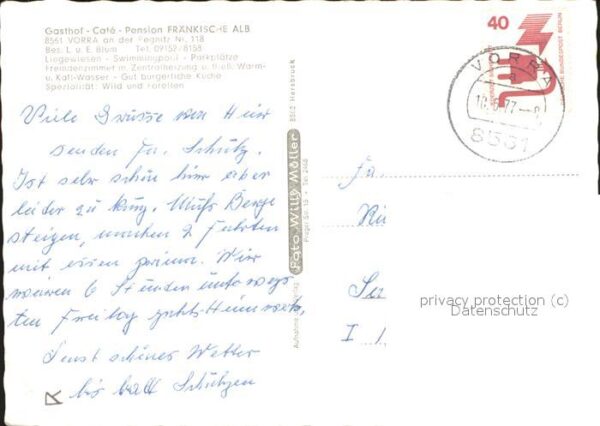 Gasthof - Café - Pension FRÄNKISCHE ALB
8561 VORRA an der Pegnitz Nr. 118
Bes. L. u. E. Blum Tel. 09152-8158
Liegewiesen - Swimmingpool - Parkplätze
Fremdenzimmer m. Zentralheizung u. fließ. Warm-
u. Kalt-Wasser - Gut bürgerliche Küche
Spezialität: Wild und Forellen
Viele Grüsse von Hier
senden Fa. Schütz.
Ist sehr schön hier aber
leider zu kurz. Muß Berge
steigen, machen 2 Fahrten
mit essen prima. Wir
waren 6 Stunden unterwegs
ten Freitag gehts Heimwerts,
Sonst schönes Wetter
bis bald Schützen
Foto Willy Möller
8562 Hersbruck
40
DEUTSCHE BUNDESPOST BERLIN
VORRA
a
77
8561
Fa.
I
privacy protection (c)
Datenschutz